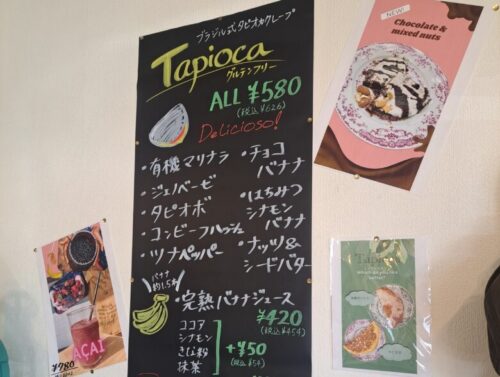 ブラジル式タピオカクレープ
Tapioca
グルテンフリー
ALL ¥580
(税込¥626)
Delicioso!
・有機マリナラ
・ジェノベーゼ
・タピオボ
・コンビーフハッシュ
・ツナペッパー
・チョコバナナ
・はちみつシナモンバナナ
・ナッツ&シードバター
バナナ約1.5本
・完熟バナナジュース
¥420
(税込¥454)
ココア
シナモン
きな粉
抹茶
+¥50
(税込¥54)
NEW!
Chocolate &
mixed nuts
AÇAI
¥780
Tapioca